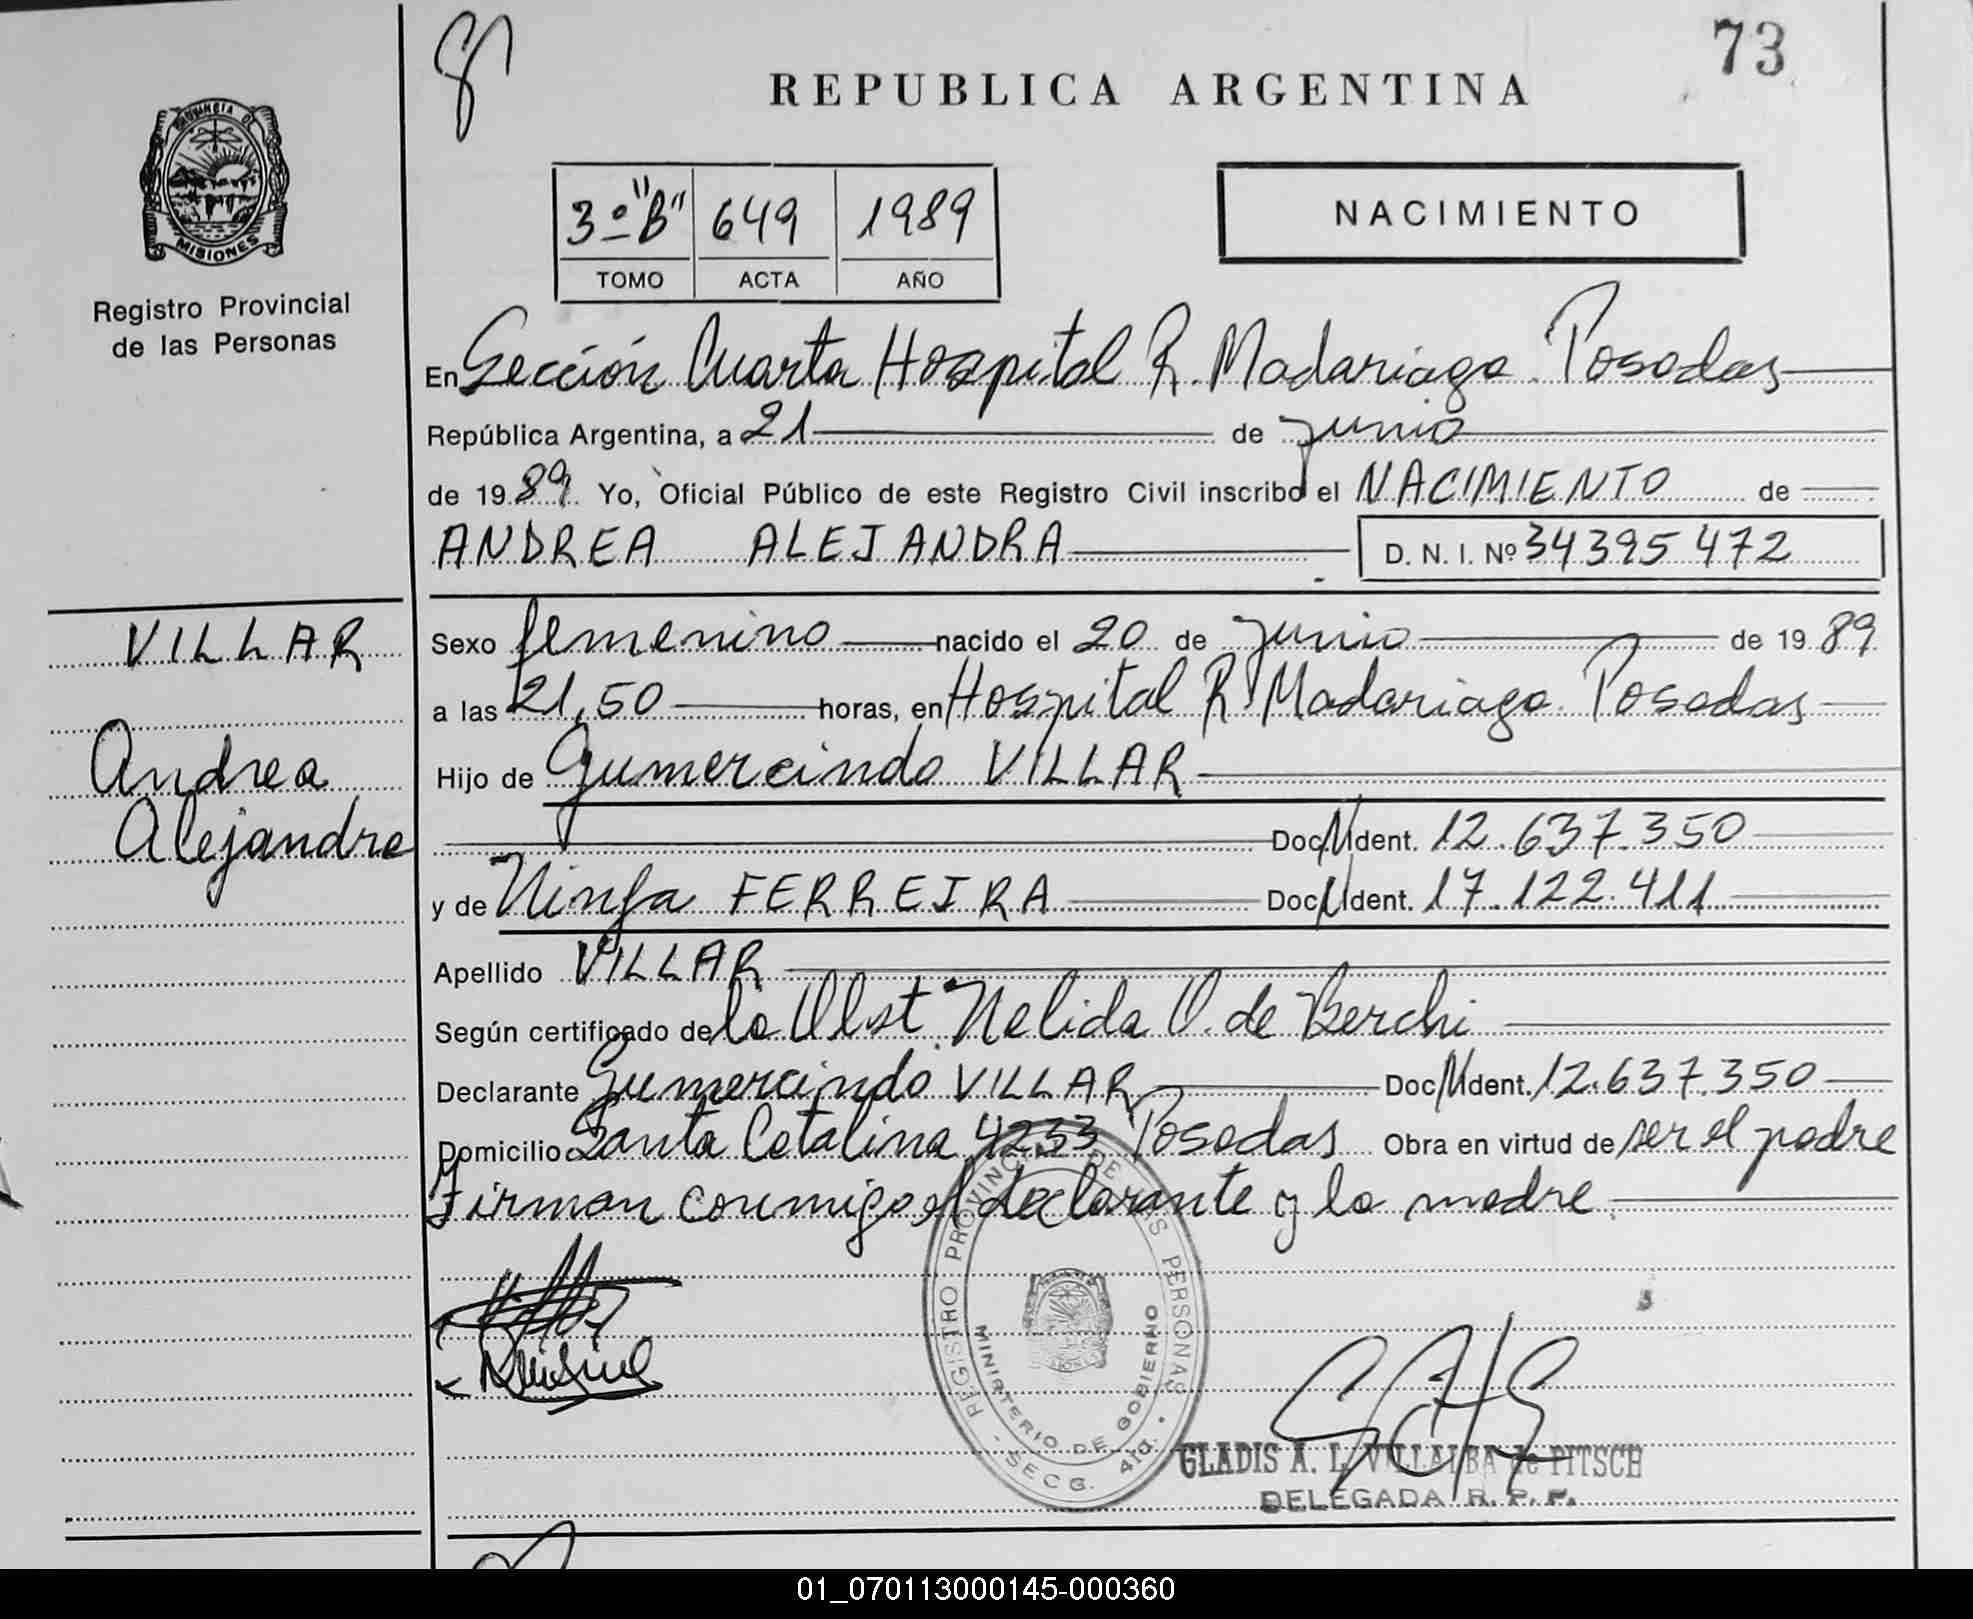 73
REPUBLICA ARGENTINA
PROVINCIA DE
MISIONES
Registro Provincial
de las Personas
3º "B" 649 1989
TOMO ACTA AÑO
NACIMIENTO
En Sección Cuarta Hospital R. Madariaga. Posadas
República Argentina, a 21 de junio
de 1989 Yo, Oficial Público de este Registro Civil inscribo el NACIMIENTO de
ANDREA ALEJANDRA
D. N. I. Nº 34395472
VILLAR
Andrea
Alejandra
Sexo femenino nacido el 20 de junio de 1989
a las 21,50 horas, en Hospital R. Madariaga. Posadas
Hijo de Gumercindo VILLAR
Doc. Ident. 12.637.350
y de Ninfa FERREIRA Doc. Ident. 17.122.411
Apellido VILLAR
Según certificado de la Obst. Nelida O. de Berchi
Declarante Gumercindo VILLAR Doc. Ident. 12.637.350
Domicilio Santa Catalina 4253 Posadas Obra en virtud de ser el padre
Firman conmigo el declarante y la madre.
REGISTRO PROVINCIAL DE LAS PERSONAS
MINISTERIO DE GOBIERNO
- SECC. 4ta. -
GLADIS A. L. VILLALBA de PITSCH
DELEGADA R. P. P.
01_070113000145-000360